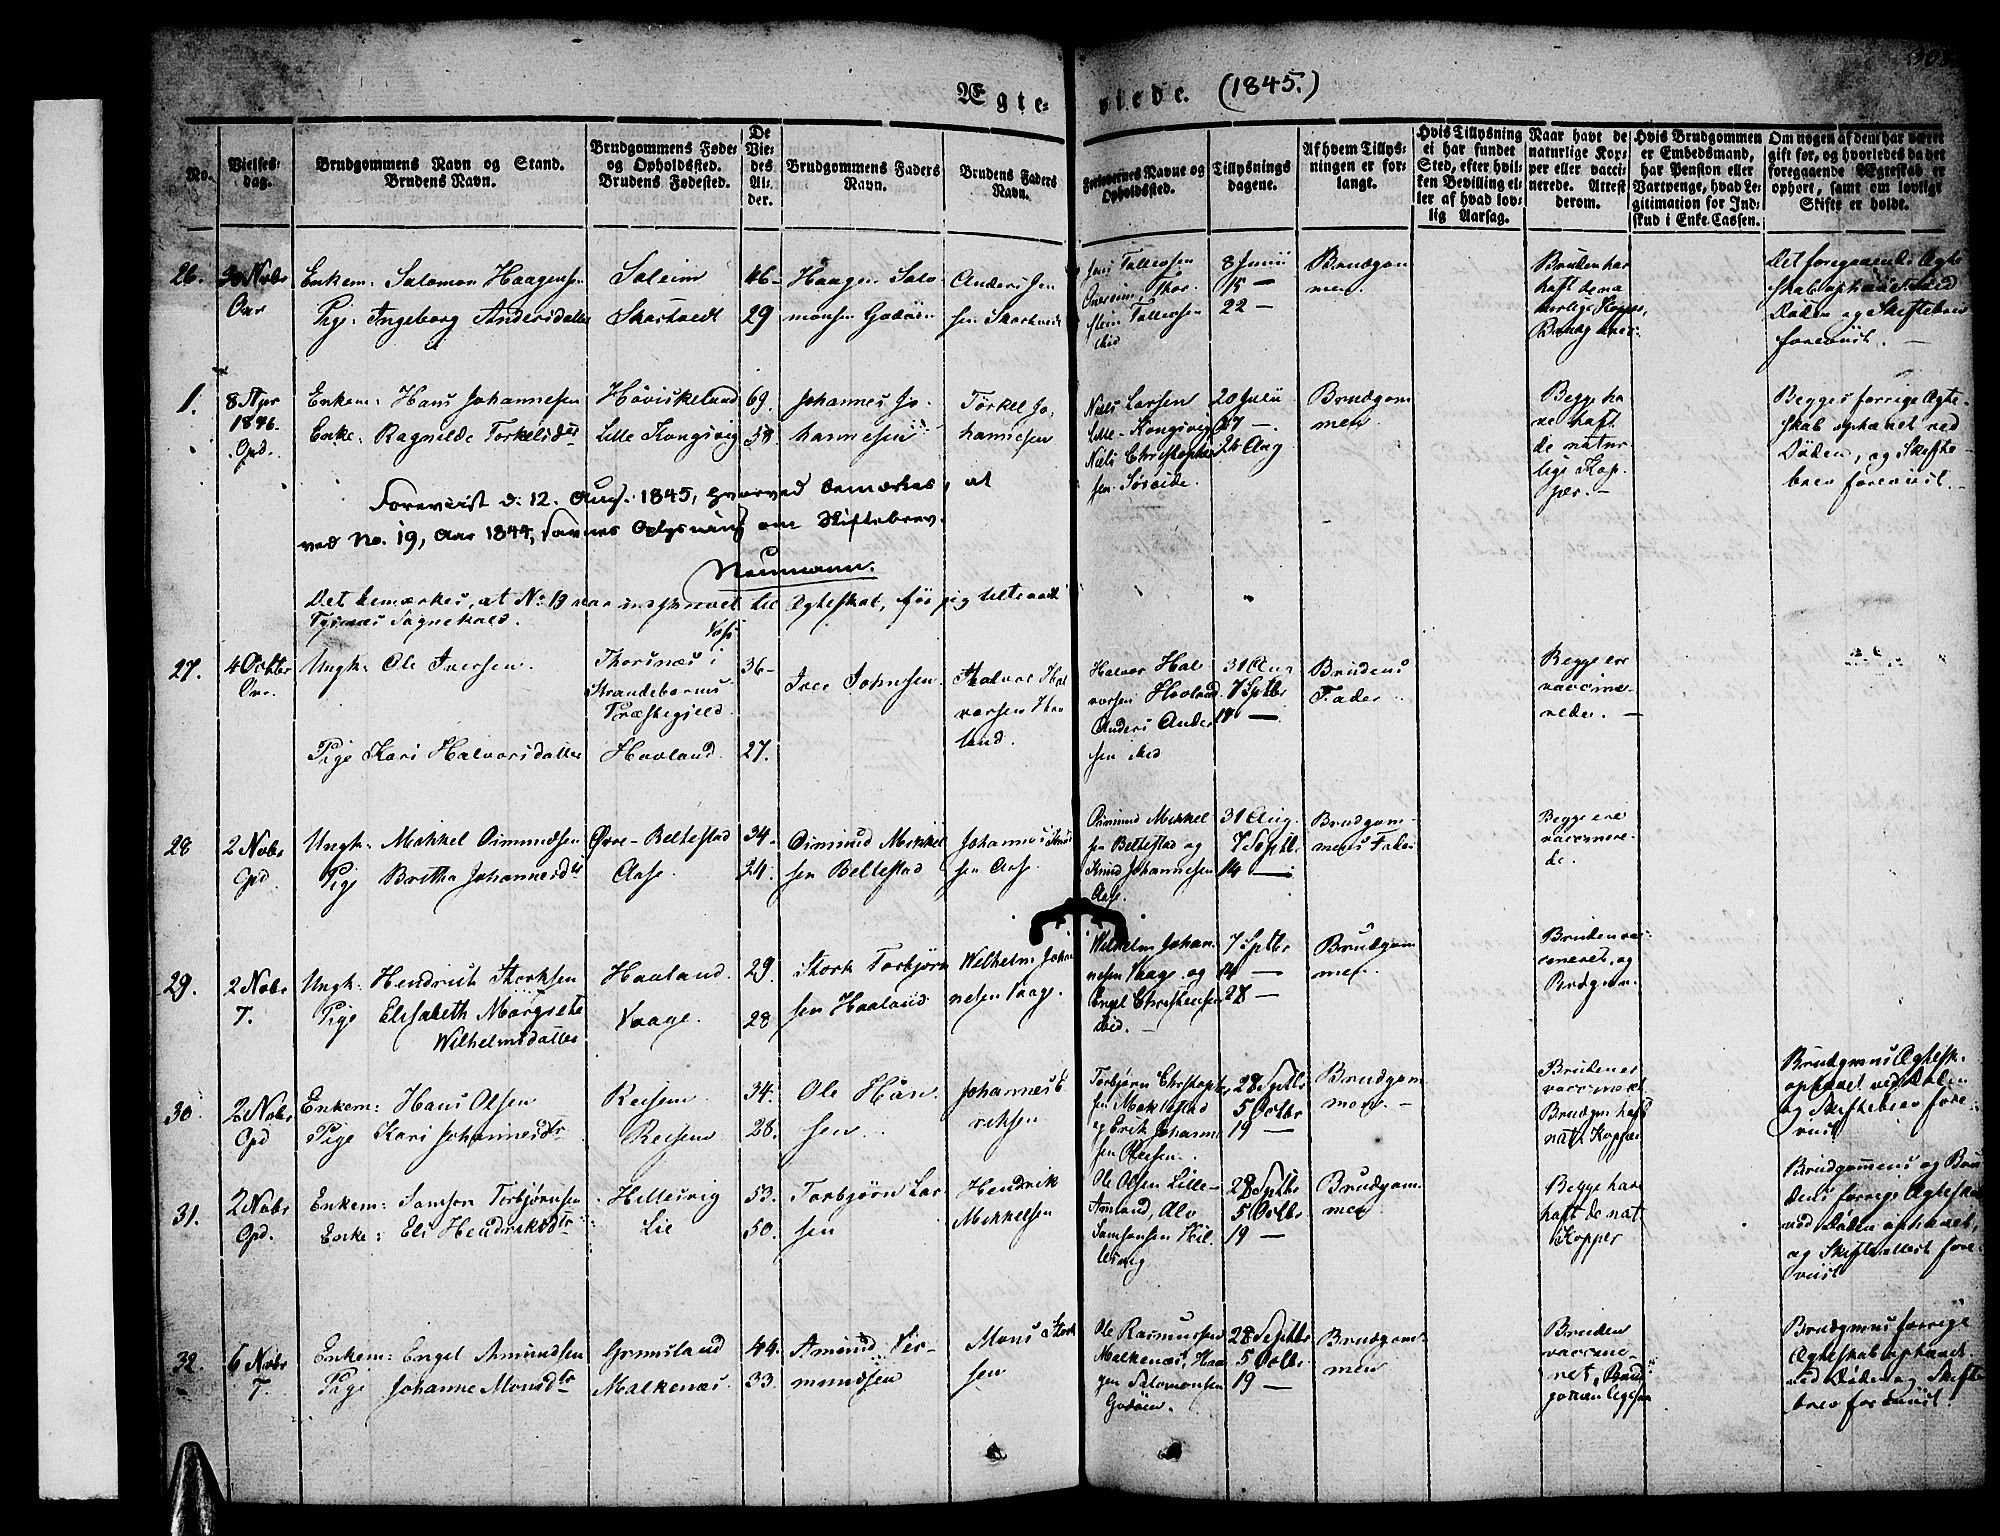 Ægteviede. (1845.)
No.
Vielsesdag.
Brudgommens Navn og Stand.
Brudens Navn.
Brudgommens Føde-
og Opholdssted.
Brudens Fødested.
De
Vie-
des
Al-
der.
Brudgommens Faders
Navn.
Brudens Faders
Navn.
Forlovernes Navne og
Opholdssted.
Tillysnings
dagene.
Af hvem Tillys-
ningen er for-
langt.
Hvis Tillysning
ei har fundet
Sted, efter hvil-
ken Bevilling el-
ler af hvad lov-
lig Aarsag.
Naar havt de
naturlige Kop-
per eller vacci-
nerede. Attest
derom.
Hvis Brudgommen
er Embedsmand,
har Pension eller
Vartpenge, hvad Le-
gitimation for Ind-
skud i Enke-Cassen.
Om nogen af dem har været
gift før, og hvorledes da det
foregaaende Ægteskab er
ophørt, samt om lovligt
Skifte er holdt.
26.
Enkem: Salomon Haagens
Pige Ingeborg Andersdatter
Soleim
Skartvedt
46
29
Haagen Salo
monsen Godøen
Anders Jen
sen Skartvedt
8 Junii
15 —
22 —
Brudgom
men
Bruden har
haft de na
turlige Kopper,
Det foregaaende Ægte
skab ophævet ved
Døden og Skiftebrev
foreviist. —
1.
8 Apr
1846.
Opd.
Enkem: Hans Johannesen
Enke: Ragnilde Torkelsdatt
Høviskeland
Lille Kongsvig
69.
Johannes Jo
hannesen
Torkel Jo
hannesen
Niels Larsen
Lille-Kongsvig
Niels Christophe
sen Søreide.
20 Julii
27 —
26 Aug
Brudgom
men.
Begge ha
ve haft
de natur
lige Kop
per. —
Begges forrige Ægte-
skab ophævet ved
Døden, og Skifte-
brev foreviist. —
Foreviist d. 12. Aug. 1845, hvorved bemærkes, at
ved No. 19, Aar 1844, savnes Oplysning om Skiftebrev.
Neumann.
Det bemærkes, at No 19 var indskrevet til Ægteskab, før jeg tiltraadte
Tysnæs Sognekald.
27.
4 Octbr
Ungk: Ole Iversen.
Pige Kari Halvorsdatter
Thorsnæs i
Strandebarms
Præstegjeld.
Haaland.
36
27.
Iver Johnsen.
Halvor Hal
vorsen Haa
land.
Halvor Hal
vorsen Haaland
Anders Ander
sen ibid
31 Aug
7 Septbr
14 —
Brudens
Fader.
Begge ere
vaccine-
rede. —
28
2 Nobr
Opd
Ungk: Mikkel Oimundsen
Pige Britha Johannesdtr
Øvre-Beltestad
Aase.
34.
24.
Oimund Mikkel
sen Beltestad
Johannes Knud
sen Aase
Oimund Mikkel
sen Beltestad og
Knud Johannesen
Aase.
31 Aug.
7 Septbr.
14 —
Brudgom-
mens Fader
Begge ere
vaccinere-
de.
29.
2 Nobr
T.
Ungk: Hendrick Storksen
Pige Elisabeth Margrete
Wilhelmsdatter
Haaland.
Vaage.
29
28
Stork Torbjørn
sen Haaland
Wilhelm Joha
nesen Vaage.
Wilhelm Johan
nesen Vaage og
Engel Christensen
ibid. —
7 Septbr
14 —
28 —
Brudgom
men.
Bruden vac-
cineret, og
Brudgom.
30
2 Nobr
Opd
Enkem: Hans Olsen
Pige Kari Johannesdtr
Reisen
Reisen
34.
28.
Ole Han
sen
Johannes E
richsen
Torbjørn Christoph
sen Meklestad
og Erik Johanne
sen Reisen
28 Septbr
5 Octbr
19 —
Brudgom-
men. —
Bruden er
vaccineret
Brudgm haft
nat. Kopper
Brudgmns Ægtesk.
ophævet ved Døden
og Skiftebrev fore-
viist
31.
2 Nobr
Opd.
Enkem: Samson Torbjørnsen
Enke: Eli Hendriksdtr
Hillesvig
Lie
53.
50.
Torbjørn Lar
sen
Hendrik
Mikkelsen
Ole Olsen Lille-
Amland, Alv
Samsonsen Hil
lesvig
28 Septbr
5 Octbr
19 —
Brudgom-
men
Begge have
haft de nat.
Kopper
Brudgommens og Bru
dens forrige Ægteskab
ved Døden ophævet,
og Skifteattest fore-
viist
32.
6 Nobr
T.
Enkem: Engel Amundsen
Pige Johanne Monsdtr
Grimsland
Malkenæs.
44.
33.
Amund Si-
mundsen
Mons Stork
sen
Ole Rasmussen
Malkenæs, Haa
gen Salomonsen
Godøen.
28 Septbr
5 Octbr
19 —
Brudgom-
men
Bruden
vaccine-
ret, Brud
Brudgmns forrige
Ægteskab ophævet
ved Døden og Skifte
brev foreviist.